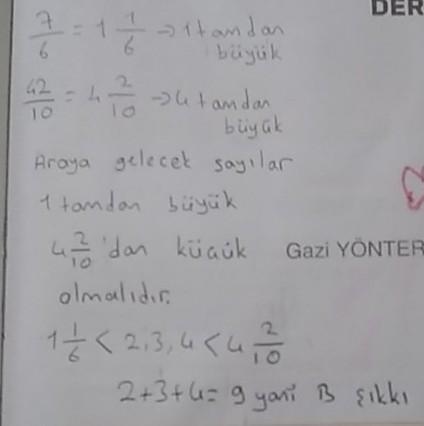 DER
7/6 = 1 1/6 → 1 tamdan
büyük
42/10 = 4 2/10 → 4 tamdan
büyük
Araya gelecek sayılar
1 tamdan büyük
4 2/10 'dan küçük
Gazi YÖNTER
olmalıdır.
1 1/6 < 2,3,4 < 4 2/10
2+3+4= 9 yani B şıkkı